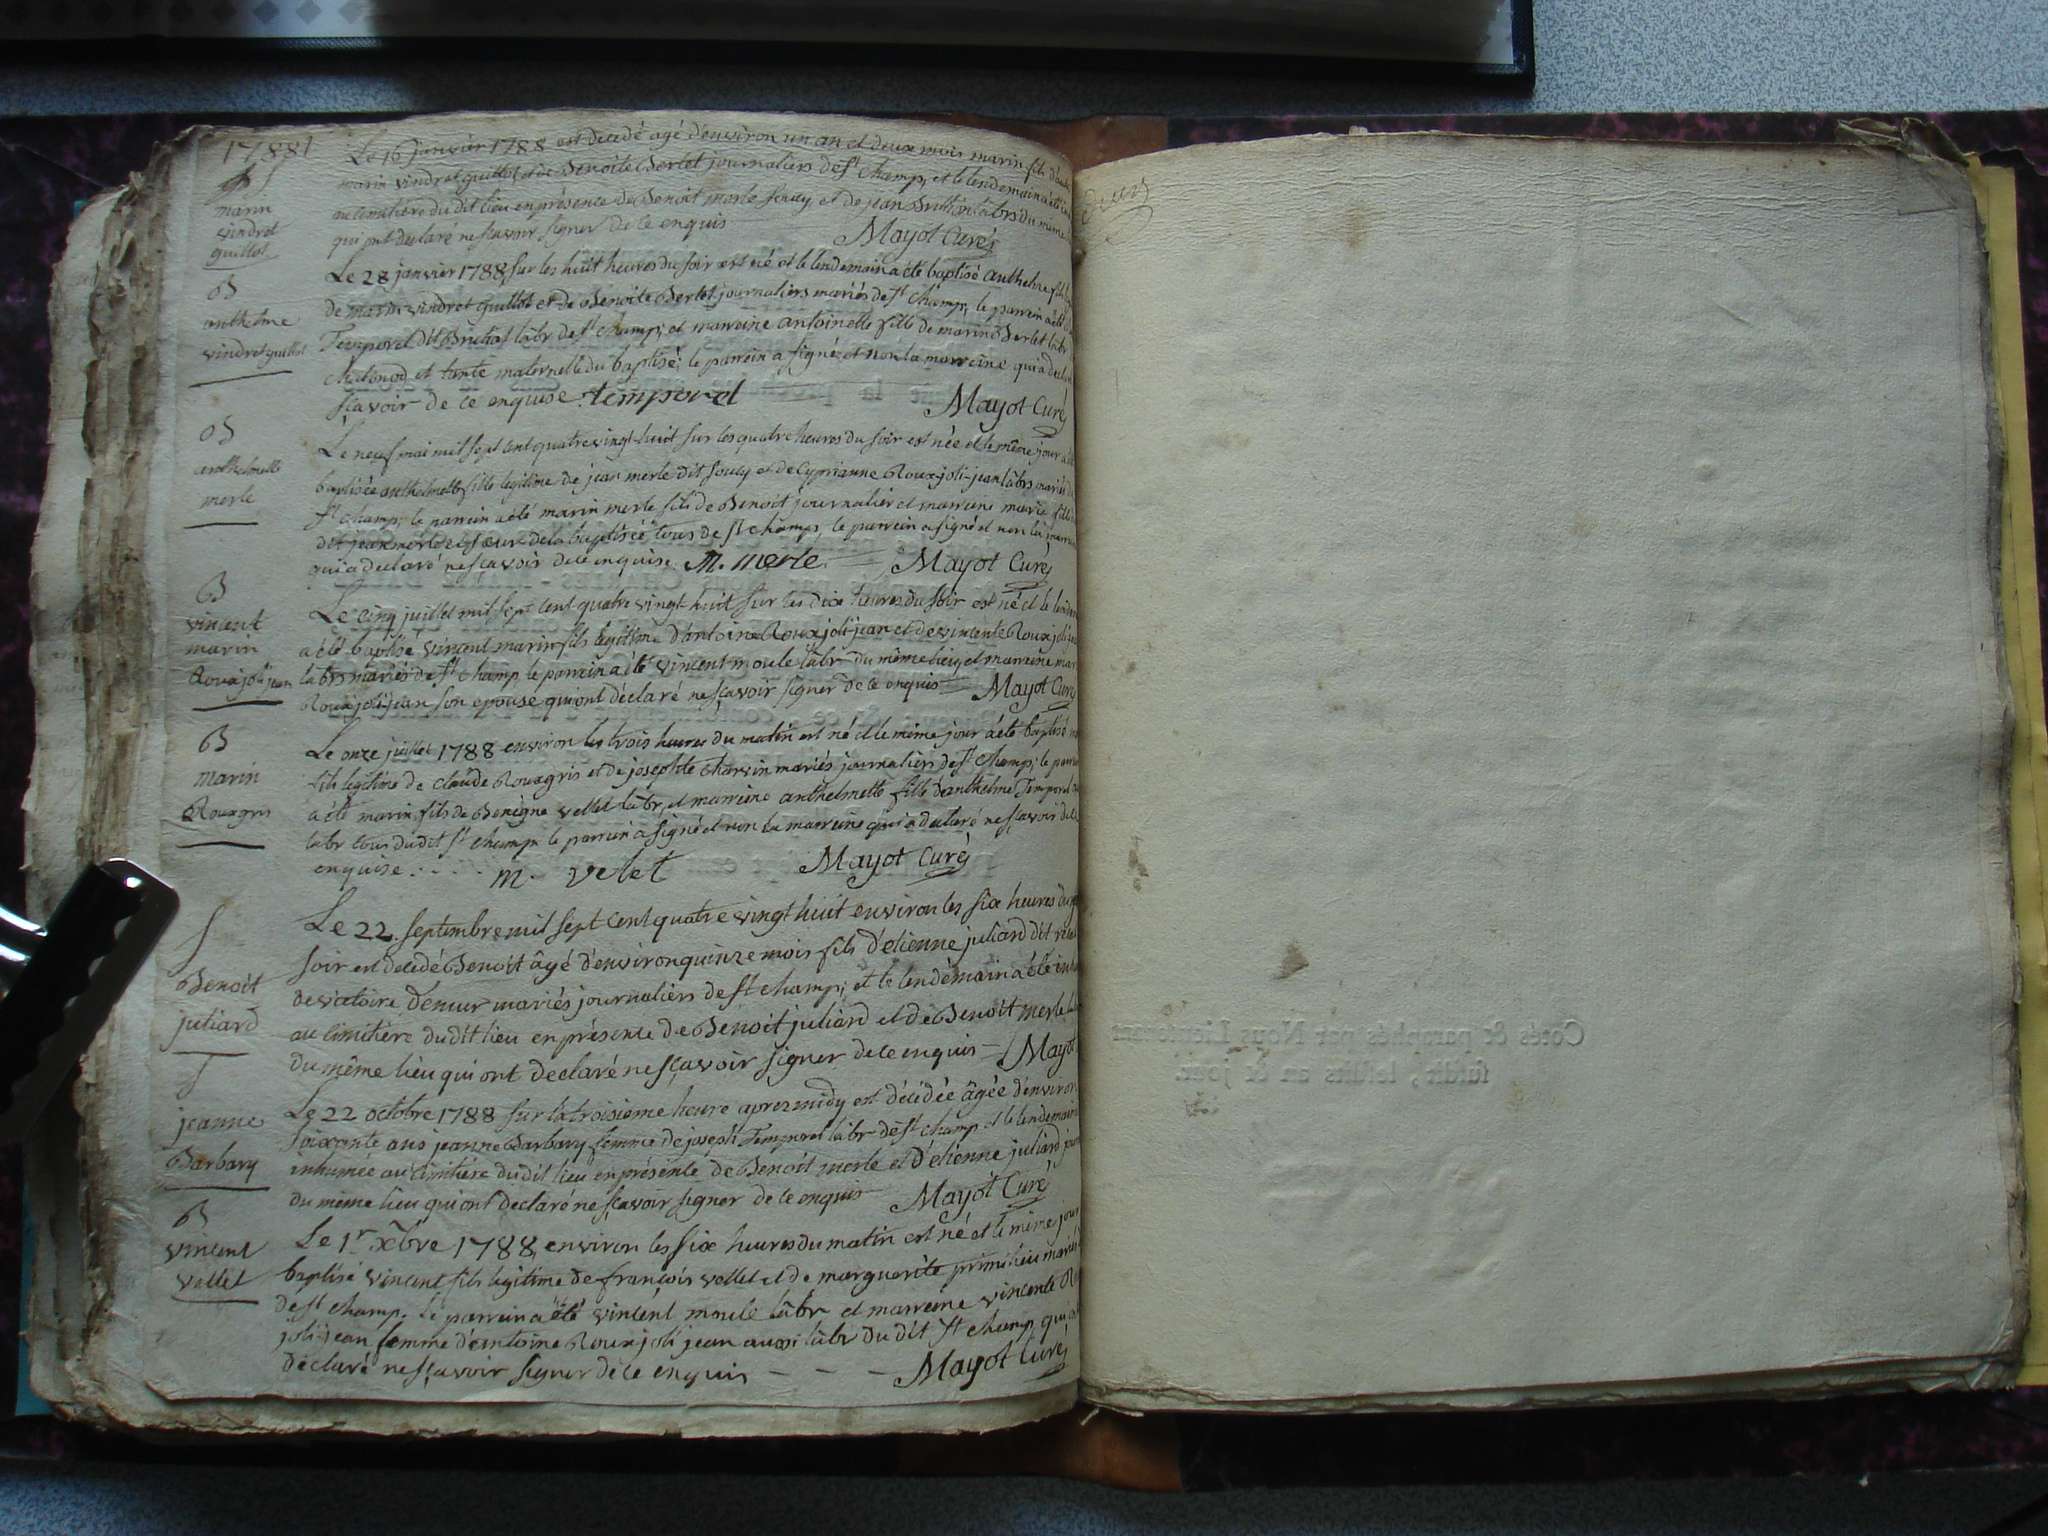 1788
S
marin
vindret
guillot
Le 16 janvier 1788 est decedé agé d'environ un an et deux mois marin fils
marin vindret guillot et de Benoite Berlet journaliers de st champ, et le lendemain a été
au cimitière du dit lieu en présence de Benoit merle soucy et de jean labrs du même
qui ont declaré ne sçavoir signer de ce enquis
Mayot Curé
B
anthelme
vindret guillot
Le 28 janvier 1788 sur les huit heures du soir est né et le lendemain a été baptisé anthelme fils
de marin vindret guillot et de Benoite Berlet journaliers mariés de st champ, le parrein a été
Temporel dit labr de st champ, et marreine antoinette fille de marin Berlet labr
et tante maternelle du baptisé; le parrein a signé et non la marreine qui a
sçavoir de ce enquise temporel
Mayot Curé
B
anthelmette
merle
Le neuf mai mil sept cent quatre vingt-huit sur les quatre heures du soir est née et le même jour a été
baptisée anthelmette fille legitime de jean merle dit soucy et de Cyprianne Roux-joli-jean labrs mariés
st champ; le parrein a été marin merle fils de Benoit journalier et marreine marie fille
dit jean merle et sœur de la baptisée tous de st champ, le parrein a signé et non la
qui a declaré ne sçavoir de ce enquise. M. merle.
Mayot Curé
B
vincent
marin
Roux joli jean
Le cinq juillet mil sept cent quatre vingt-huit sur les dix heures du soir est né et le
a été baptisé vincent marin fils legitime d'antoine Roux joli jean et de vincente Roux joli
labrs mariés de st champ, le parrein a été vincent moule labr du même lieu, et marreine
Roux joli jean son epouse qui ont déclaré ne sçavoir signer de ce enquis
Mayot Curé
B
marin
Rouxgris
Le onze juillet 1788 environ les trois heures du matin est né et le même jour a été baptisé
fils legitime de claude Rouxgris et de josephte charvin mariés journaliers de st champ; le
a été marin fils de Benigne vellet labr, et marreine anthelmette fille d'anthelme Temporel
labr tous du dit st champ le parrein a signé et non la marreine qui a declaré ne sçavoir de ce
enquise. . . . . m. velet
Mayot Curé
S
Benoit
juliard
Le 22 septembre mil sept cent quatre vingt huit environ les six heures du
soir est decedé Benoit âgé d'environ quinze mois fils d'etienne juliard dit
de victoire Demur mariés journaliers de st champ; et le lendemain a été
au cimitière du dit lieu en présence de Benoit juliard et de Benoit merle
du même lieu qui ont declaré ne sçavoir signer de ce enquis
Mayot
S
jeanne
Barbary
Le 22 octobre 1788 sur la troisieme heure aprez midy est décédée âgée d'environ
soixante ans jeanne Barbary femme de joseph Temporel labr de st champ et le lendemain
inhumée au cimitière du dit lieu en présence de Benoit merle et d'etienne juliard
du même lieu qui ont declaré ne sçavoir signer de ce enquis
Mayot Curé
B
vincent
vellet
Le 1r xbre 1788 environ les six heures du matin est né et le même jour
baptisé vincent fils legitime de françois vellet et de marguerite
de st champ. Le parrein a été vincent moule labr et marreine vincente
joli-jean femme d'antoine Roux joli jean aussi labr du dit st champ qui
déclaré ne sçavoir signer de ce enquis
Mayot Curé
Cotés & paraphés par Nous
susdit, lesdits an & jour.